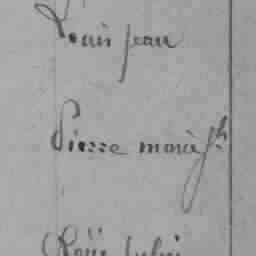 Louis jean
Pierre marie jh